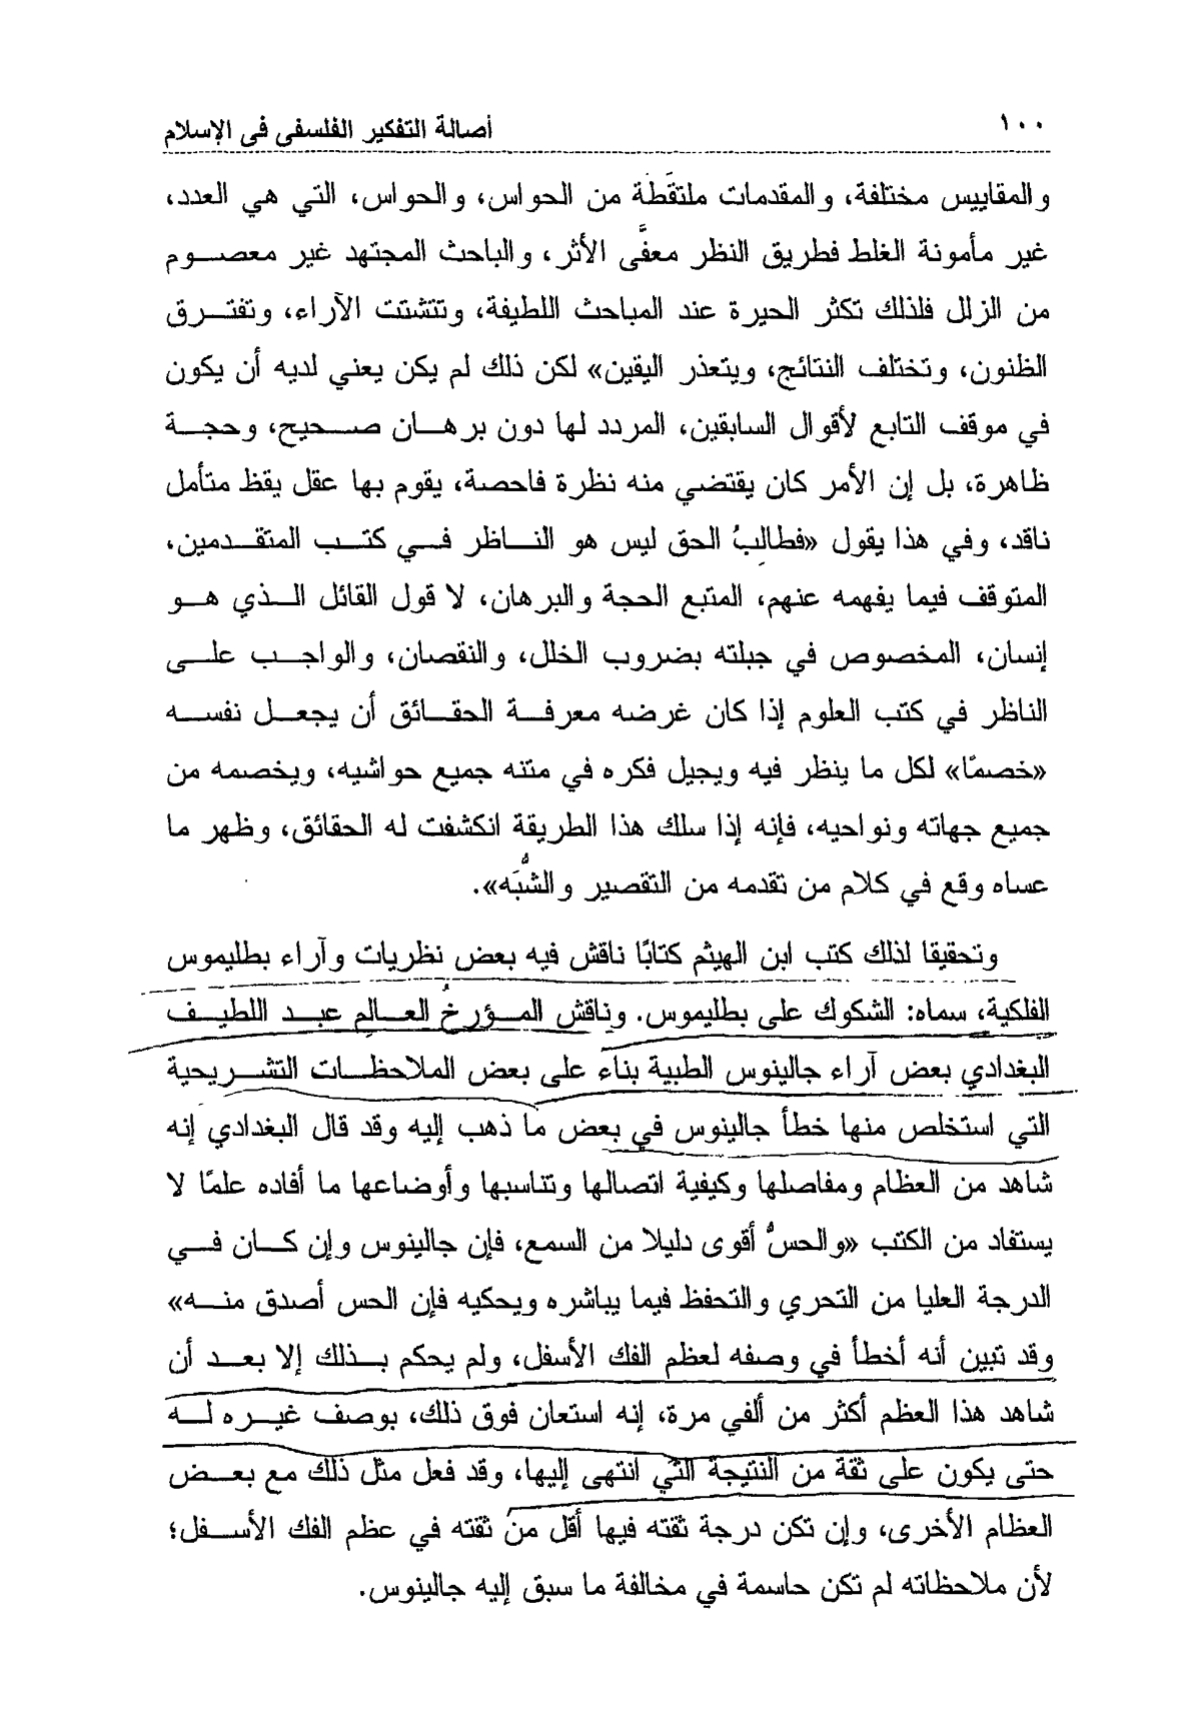 ١٠٠
أصالة التفكير الفلسفى فى الإسلام
والمقاييس مختلفة، والمقدمات ملتقَطَة من الحواس، والحواس، التي هي العدد،
غير مأمونة الغلط فطريق النظر معفَّى الأثر، والباحث المجتهد غير معصوم
من الزلل فلذلك تكثر الحيرة عند المباحث اللطيفة، وتتشتت الآراء، وتفترق
الظنون، وتختلف النتائج، ويتعذر اليقين» لكن ذلك لم يكن يعني لديه أن يكون
في موقف التابع لأقوال السابقين، المردد لها دون برهان صحيح، وحجة
ظاهرة، بل إن الأمر كان يقتضي منه نظرة فاحصة، يقوم بها عقل يقظ متأمل
ناقد، وفي هذا يقول «فطالِبُ الحق ليس هو الناظر في كتب المتقدمين،
المتوقف فيما يفهمه عنهم، المتبع الحجة والبرهان، لا قول القائل الذي هو
إنسان، المخصوص في جبلته بضروب الخلل، والنقصان، والواجب على
الناظر في كتب العلوم إذا كان غرضه معرفة الحقائق أن يجعل نفسه
«خصمًا» لكل ما ينظر فيه ويجيل فكره في متنه جميع حواشيه، ويخصمه من
جميع جهاته ونواحيه، فإنه إذا سلك هذا الطريقة انكشفت له الحقائق، وظهر ما
عساه وقع في كلام من تقدمه من التقصير والشُّبَه».
وتحقيقا لذلك كتب ابن الهيثم كتابًا ناقش فيه بعض نظريات وآراء بطليموس
الفلكية، سماه: الشكوك على بطليموس. وناقش المؤرخُ العالم عبد اللطيف
البغدادي بعض آراء جالينوس الطبية بناء على بعض الملاحظات التشريحية
التي استخلص منها خطأ جالينوس في بعض ما ذهب إليه وقد قال البغدادي إنه
شاهد من العظام ومفاصلها وكيفية اتصالها وتناسبها وأوضاعها ما أفاده علمًا لا
يستفاد من الكتب «والحسُّ أقوى دليلا من السمع، فإن جالينوس وإن كان في
الدرجة العليا من التحري والتحفظ فيما يباشره ويحكيه فإن الحس أصدق منه»
وقد تبين أنه أخطأ في وصفه لعظم الفك الأسفل، ولم يحكم بذلك إلا بعد أن
شاهد هذا العظم أكثر من ألفي مرة، إنه استعان فوق ذلك، بوصف غيره له
حتى يكون على ثقة من النتيجة التي انتهى إليها، وقد فعل مثل ذلك مع بعض
العظام الأخرى، وإن تكن درجة ثقته فيها أقل من ثقته في عظم الفك الأسفل؛
لأن ملاحظاته لم تكن حاسمة في مخالفة ما سبق إليه جالينوس.